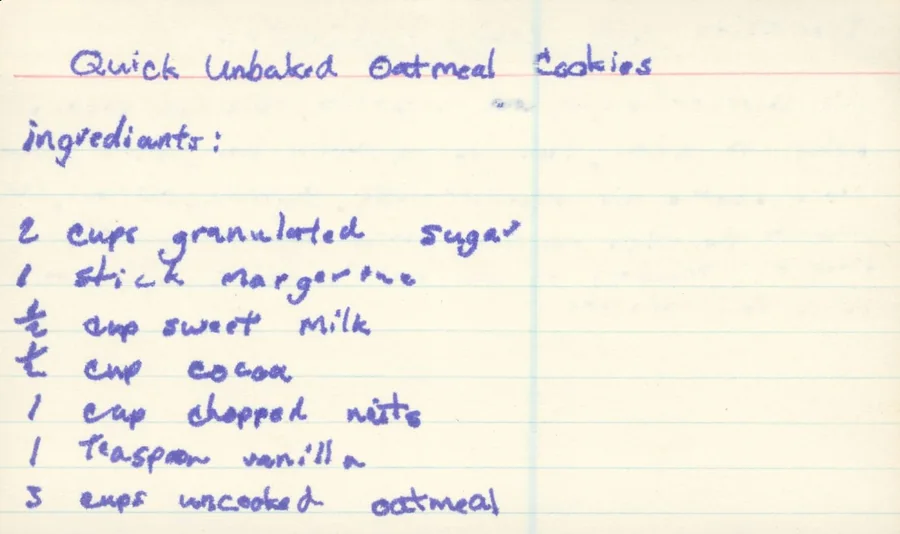 Quick Unbaked Oatmeal Cookies
ingrediants:
2 cups granulated sugar
1 stick margerine
1/2 cup sweet milk
1/2 cup cocoa
1 cup chopped nuts
1 Teaspoon vanilla
3 cups uncooked oatmeal